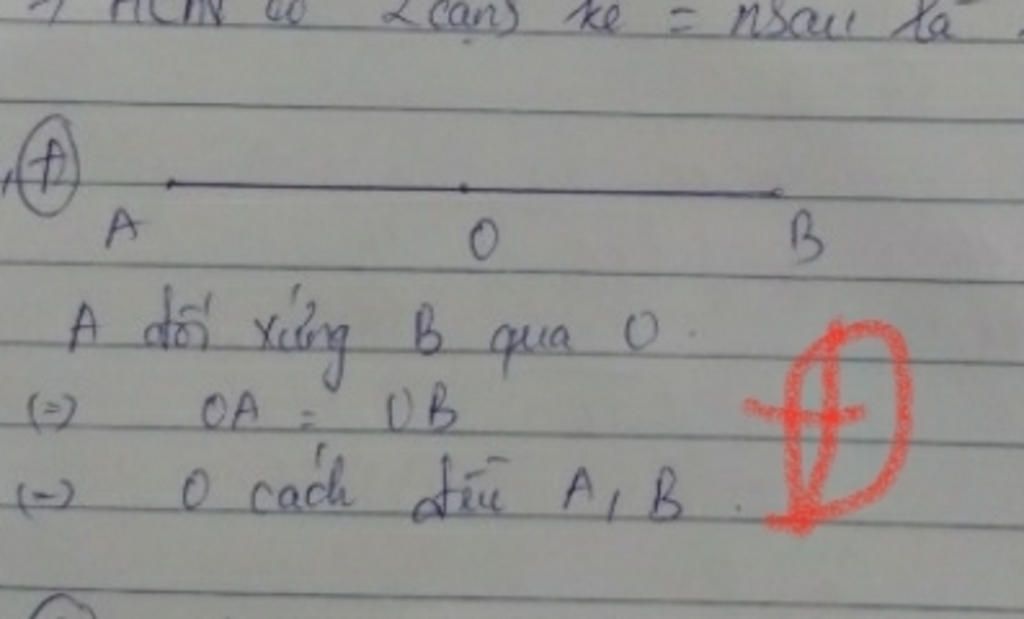 2 cạnh kề = nhau là
A O B
A đối xứng B qua O.
(=) OA = OB
(=) O cách đều A, B.
Đ